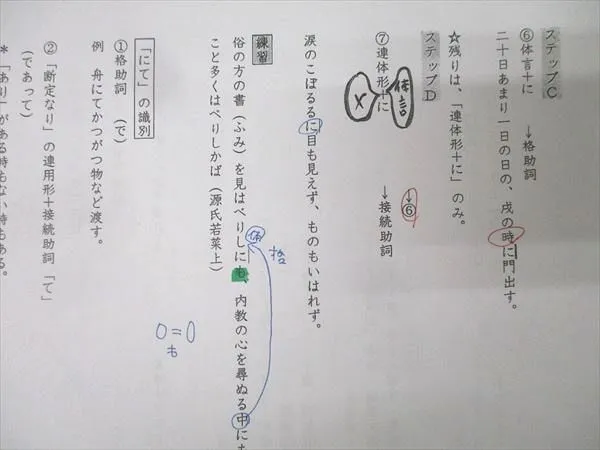 ステップC
⑥体言+に →格助詞
二十日あまり一日の日の、戌の時に門出す。
☆残りは、「連体形+に」のみ。
ステップD
体言
×
↓⑥
⑦連体形+に →接続助詞
涙のこぼるるに目も見えず、ものもいはれず。
練習
俗の方の書(ふみ)を見はべりしにも、内教の心を尋ぬる中に
体
こと多くはべりしかば(源氏若菜上)
0=0
も
「にて」の識別
①格助詞 (で)
例 舟にてかつがつ物など渡す。
②「断定なり」の連用形+接続助詞「て」
(であって)
*「あり」がある時もない時もある。